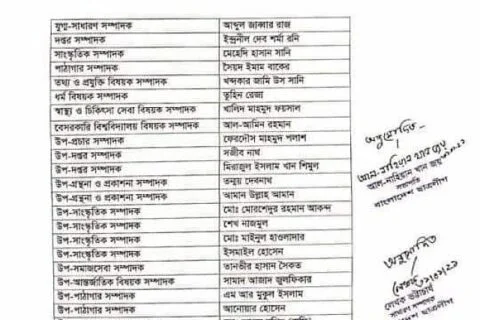 যুগ্ম-সাধারণ সম্পাদক আব্দুল জাব্বার রাজ
দপ্তর সম্পাদক ইন্দ্রনীল দেব শর্মা রনি
সাংস্কৃতিক সম্পাদক মেহেদি হাসান সানি
পাঠাগার সম্পাদক সৈয়দ ইমাম বাকের
তথ্য ও প্রযুক্তি বিষয়ক সম্পাদক খন্দকার জামি উস সানি
ধর্ম বিষয়ক সম্পাদক তুহিন রেজা
স্বাস্থ্য ও চিকিৎসা সেবা বিষয়ক সম্পাদক খালিদ মাহমুদ ফয়সাল
বেসরকারি বিশ্ববিদ্যালয় বিষয়ক সম্পাদক আল-আমিন রহমান
উপ-প্রচার সম্পাদক ফেরদৌস মাহমুদ পলাশ
উপ-দপ্তর সম্পাদক সজীব নাথ
উপ-দপ্তর সম্পাদক মিরাজুল ইসলাম খান শিমুল
উপ-গ্রন্থনা ও প্রকাশনা সম্পাদক তন্ময় দেবনাথ
উপ-গ্রন্থনা ও প্রকাশনা সম্পাদক আমান উল্লাহ আমান
উপ-সাংস্কৃতিক সম্পাদক মোঃ মোরশেদুর রহমান আকন্দ
উপ-সাংস্কৃতিক সম্পাদক শেখ নাজমুল
উপ-সাংস্কৃতিক সম্পাদক মোঃ মাইনুল হাওলাদার
উপ-সাংস্কৃতিক সম্পাদক ইসমাইল হোসেন
উপ-সমাজসেবা সম্পাদক তানভীর হাসান সৈকত
উপ-আন্তর্জাতিক বিষয়ক সম্পাদক সামাদ আজাদ জুলফিকার
উপ-পাঠাগার সম্পাদক এম আর মুকুল ইসলাম
উপ-পাঠাগার সম্পাদক আনোয়ার হোসেন
অনুমোদিত
আল-নাহিয়ান খান জয়
সভাপতি
বাংলাদেশ ছাত্রলীগ
অনুমোদিত
লেখক ভট্টাচার্য